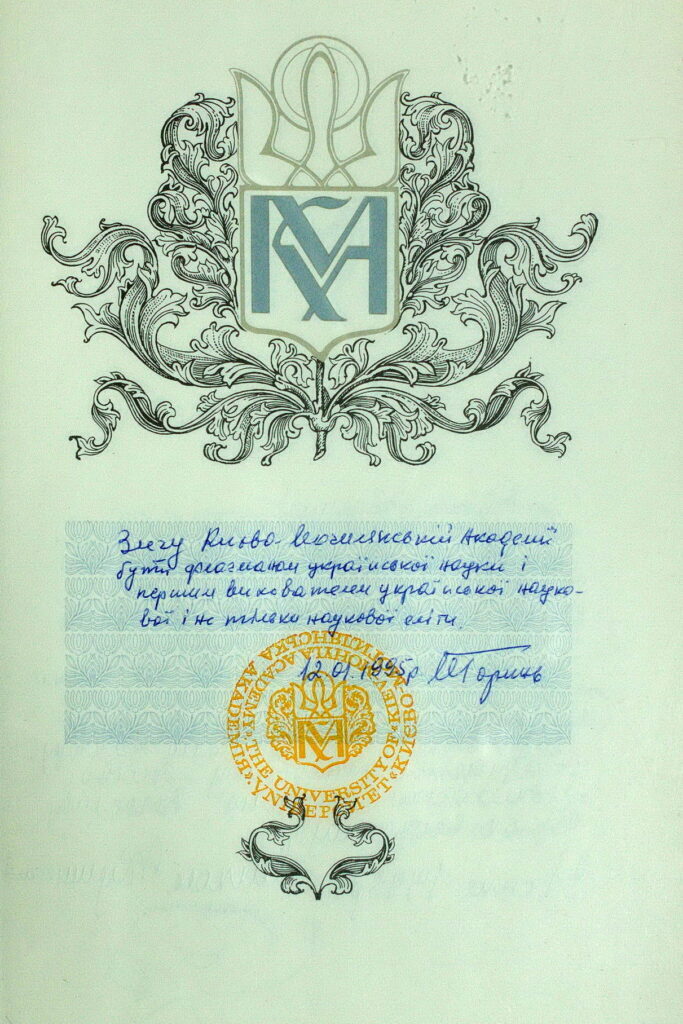 КМА
Зичу Києво-Могилянській Академії
бути флагманом української науки і
першим вихователем української науко-
вої і не тільки наукової еліти.
12.01.1995р МГоринь
УНІВЕРСИТЕТ «КИЄВО-МОГИЛЯНСЬКА АКАДЕМІЯ»
THE UNIVERSITY OF «KIEV-MOHYLA ACADEMY»
КМА